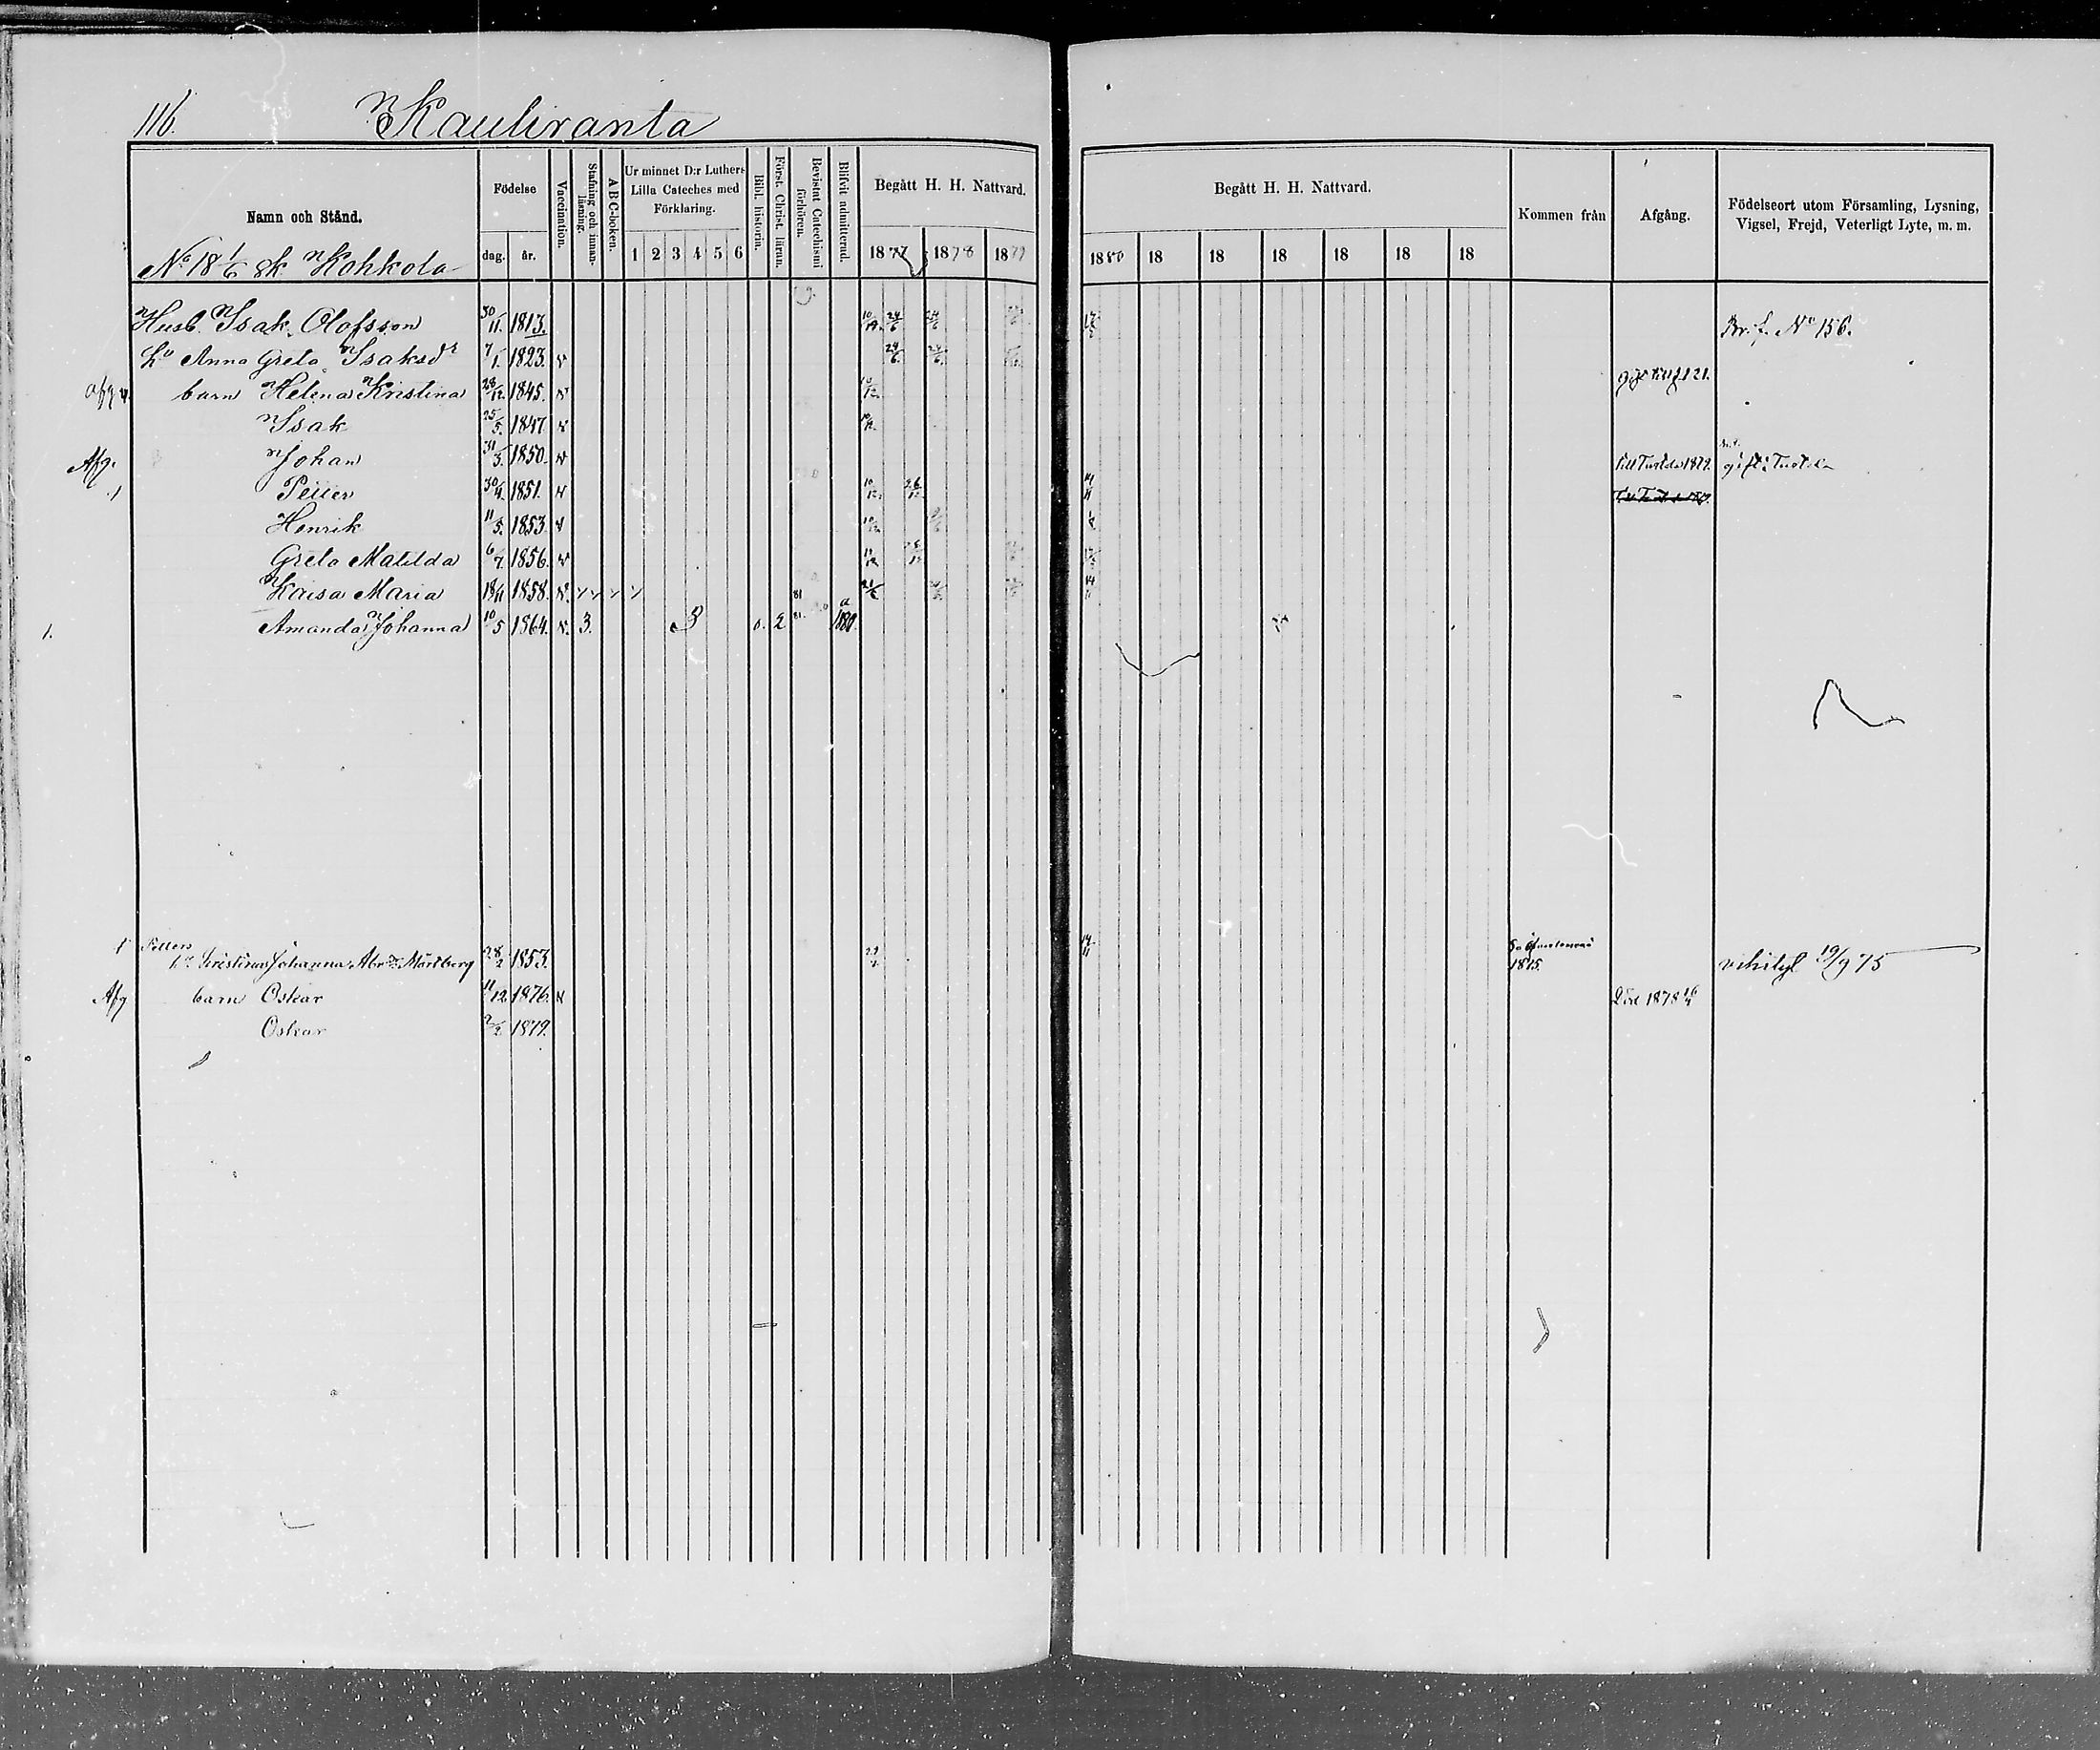 116. Kauliranta
Namn och Stånd. Födelse dag. år. Vaccination. Stafning och innanläsning. A B C-boken. Ur minnet D:r Luthers Lilla Cateches med Förklaring. 1 2 3 4 5 6 Bibl. historia. Först. Christ. läran. Bevistat Catechismi förhören. Blifvit admitterad. Begått H. H. Nattvard. 1877 1878 1879
Begått H. H. Nattvard. 1880 18 18 18 18 18 18 Kommen från Afgång. Födelseort utom Församling, Lysning, Vigsel, Frejd, Veterligt Lyte, m. m.
No 18 1/6 sk Kohkola
Husb. Isak Olofsson 30/11. 1813. 10/12. 24/6 24/6 Br. f. No 156.
hu Anna Greta Isaksdr 7/1. 1823. v 24/6. 24/6.
afg barn Helena Kristina 28/12. 1845. v 10/12. 121.
Isak 25/5. 1847 v 10/12.
Afg. Johan 31/3. 1850. v Till Turtola 1879. gift i Turtola
1 Petter 30/4. 1851. v 10/12. 26/12. 14/11
Henrik 11/5. 1853. v 10/12.
Greta Matilda 6/7. 1856. v 10/12 26/12
Kaisa Maria 18/11 1858. v. 81 24/6
1. Amanda Johanna 10/5 1864. v. 3. 3 2 81. a 1880.
1 Petters
hu Kristina Johanna Abrdr Mårtberg 28/2 1853. 14/11 1875. 19/9 75
Afg barn Oskar 11/12. 1876. v Död 1878
Oskar 2/2 1879.